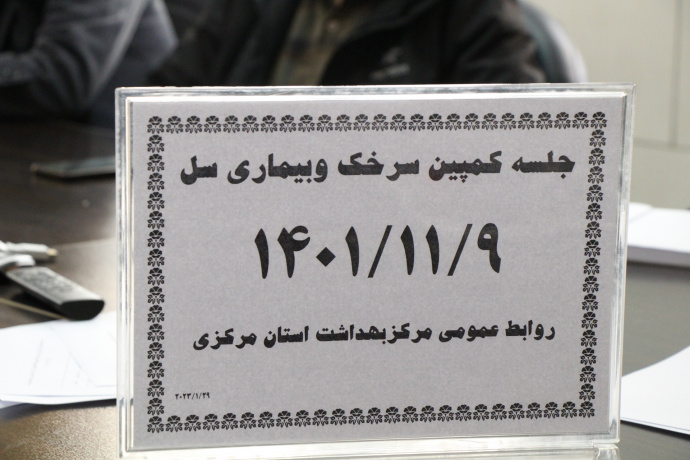 جلسه کمپین سرخک وبیماری سل
۱۴۰۱/۱۱/۹
روابط عمومی مرکزبهداشت استان مرکزی
۲۰۲۳/۱/۲۹